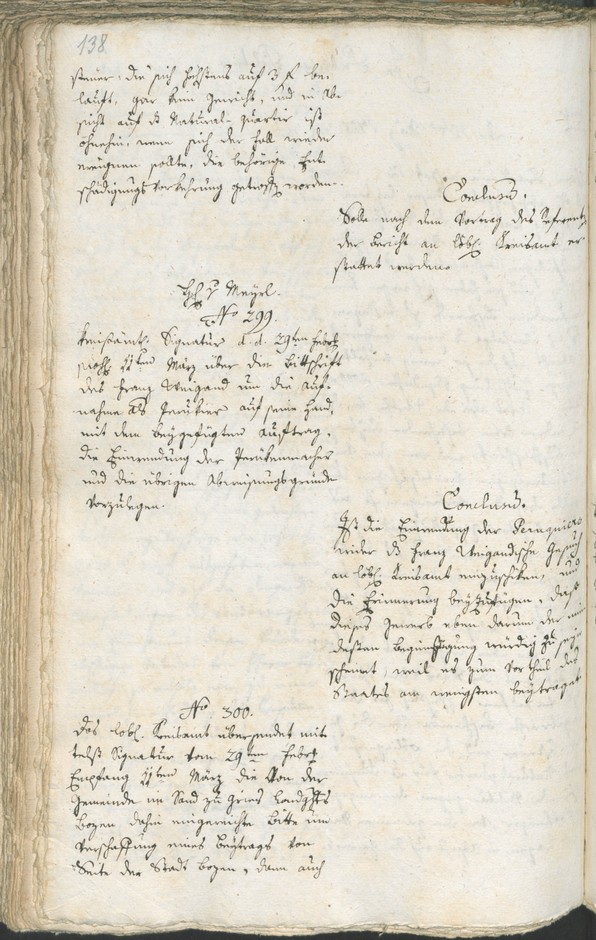 138
steuer, die sich höchstens auf 3 f be-
lauft, gar kein Gewicht, und in Ab-
sicht auf das Natural-quartir ist
ohnehin, wenn sich der Fall wieder
ereignen sollte, die behörige Ent-
schädigungs Vorkehrung getroffen worden.
Conclusum.
Solle nach dem Vortrag des Referenten
der Bericht an löbl. Kreisamt er-
stattet werden.
Meyrl.
No 299.
Kreisämtl. Signatur d. d. 29ten Febr
11ten März über die Bittschrift
des Franz Weigand um die Auf-
nahme als Perükier auf seine Hand,
mit dem beygefügten Auftrag,
die Einwendung der Perükenmacher
und die übrigen Abweisungsgründe
vorzulegen.
Conclusum.
Ist die Einwendung der Peruquiers
wider das Franz Weigandische Gesuch
an löbl. Kreisamt einzuschiken, und
die Erinnerung beyzufügen, daß
dieses Gewerb eben darum der min-
desten Begünstigung würdig zu seyn
scheinet, weil es zum Vortheil des
Staates am wenigsten beytraget
No 300.
Das löbl. Kreisamt übersendet mit
telst Signatur vom 29ten Febr
Empfang 11ten März die von der
Gemeinde im Sand zu Gries Landgchts
Bozen dahin eingereichte Bitte um
Verschaffung eines Beytrags von
Seite der Stadt Bozen, dann auch